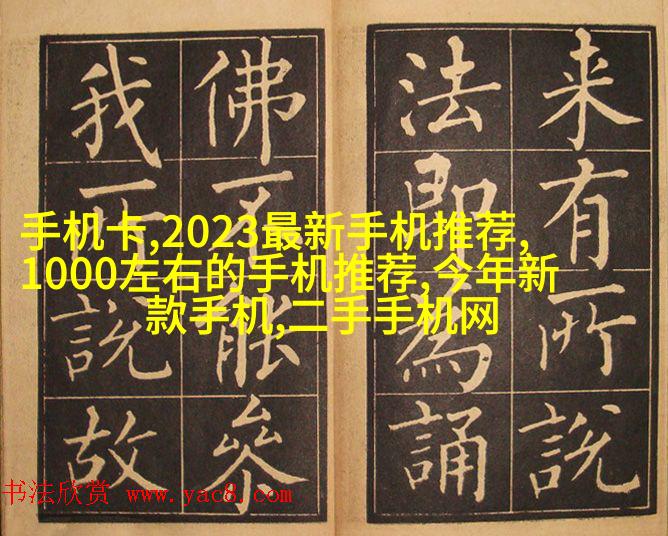 来有所說
法即為誦
佛不能叅
我所說故
手机卡,2023最新手机推荐,
1000左右的手机推荐,今年新
款手机,二手手机网
书法欣赏 www.yac8.com